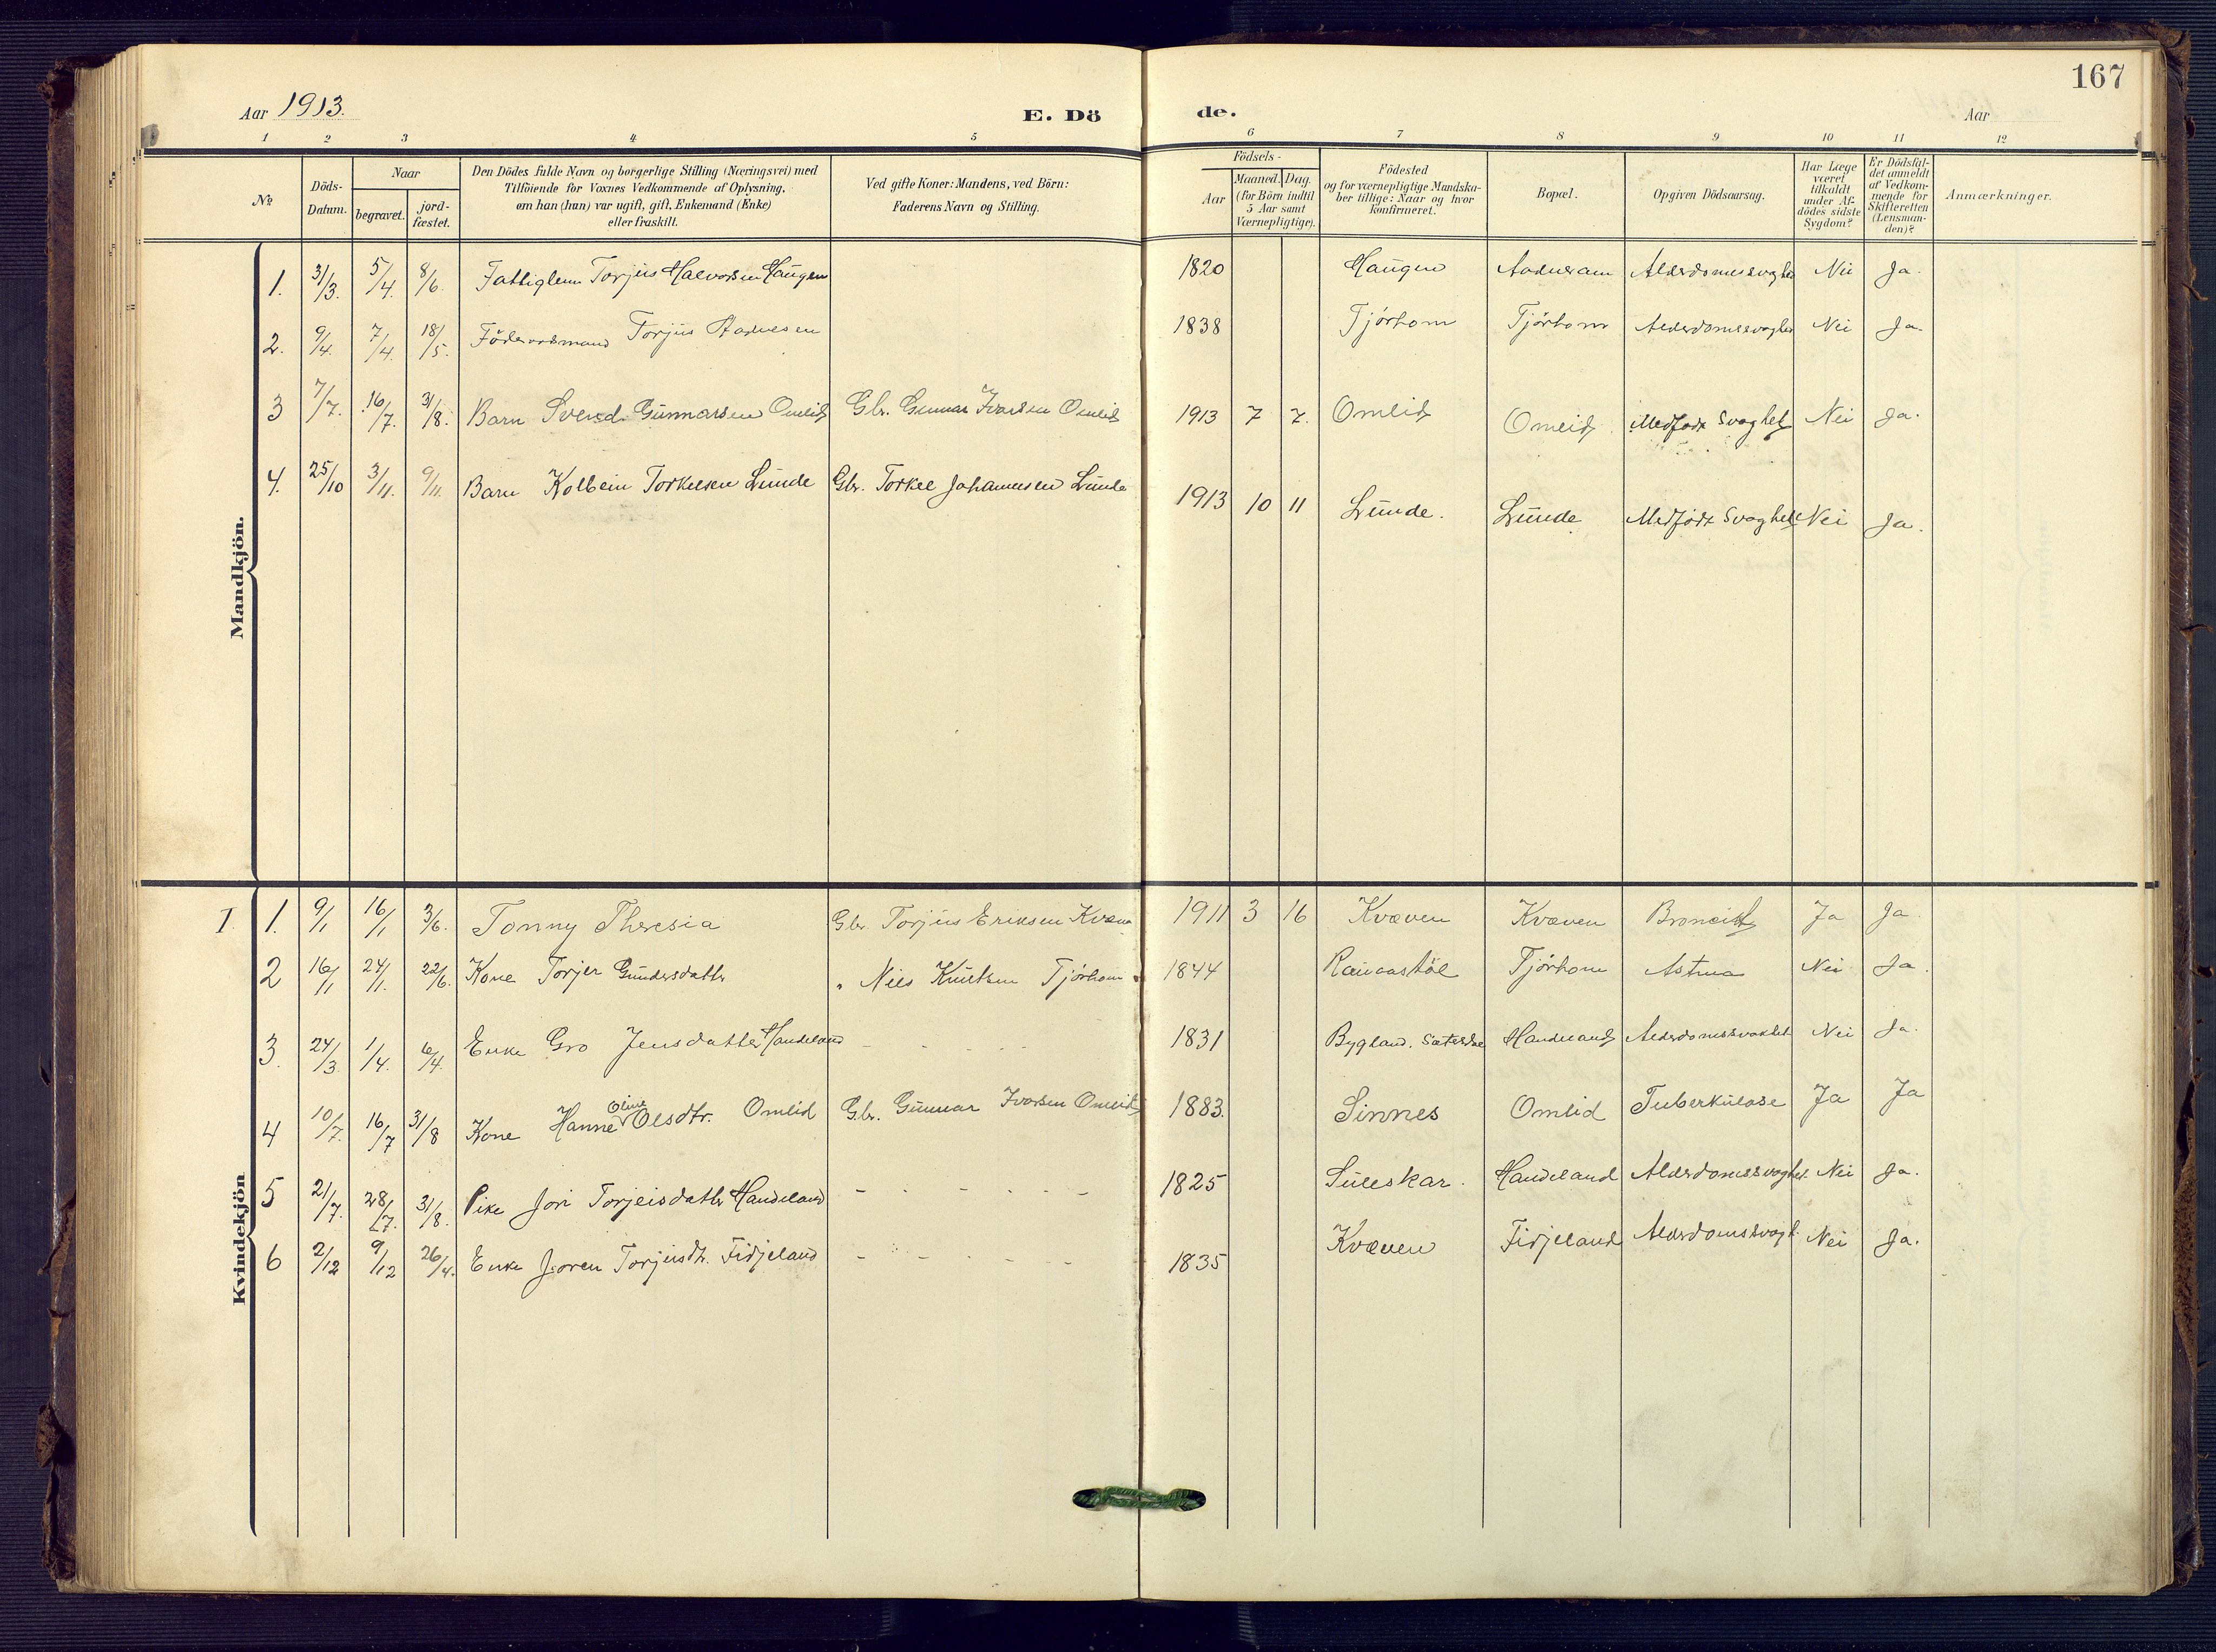 167
Aar 1913.
E. Dö de.
Aar
1 2 3 4 5 6 7 8 9 10 11 12
№
Döds-Datum.
Naar
begravet.
jord-fæstet.
Den Dödes fulde Navn og borgerlige Stilling (Næringsvei) med
Tilföiende for Voxnes Vedkommende af Oplysning,
om han (hun) var ugift, gift, Enkemand (Enke)
eller fraskilt.
Ved gifte Koner: Mandens, ved Börn:
Faderens Navn og Stilling.
Födsels-
Aar
Maaned. Dag.
(for Börn indtil
5 Aar samt
Værnepligtige).
Födested
og for værnepligtige Mandska-
ber tillige: Naar og hvor
konfirmeret.
Bopæl.
Opgiven Dödsaarsag.
Har Læge
været
tilkaldt
under Af-
dödes sidste
Sygdom?
Er Dödsfal-
det anmeldt
af Vedkom-
mende for
Skifteretten
(Lensman-
den)?
Anmærkninger.
Mandkjön.
1. 31/3. 5/4. 8/6. Fattiglem Torjus Halvorsen Haugen 1820 Haugen Aadneram Alderdomssvaghed Nei Ja.
2. 9/4. 7/4. 18/5. Föderaadsmand Torjus Aadnesen 1838 Tjörhom Tjörhom Alderdomssvaghed Nei Ja.
3 7/7. 16/7. 31/8. Barn Svend Gunnarsen Omlid Gbr. Gunnar Ivarsen Omlid 1913 7 7. Omlid Omlid Medfödt Svaghed Nei Ja.
4. 25/10 3/11. 9/11. Barn Kolbein Torkelsen Lunde Gbr. Torkel Johannesen Lunde 1913 10 11 Lunde. Lunde Medfödt Svaghed Nei Ja.
Kvindekjön
1. 9/1 16/1 3/6. Tonny Theresia Gbr. Torjus Eriksen Kvæven 1911 3 16 Kvæven Kvæven Broncit Ja Ja
2 16/1 24/1. 22/6. Kone Torjer Gundersdatter " Niels Knutsen Tjörhom 1844 Tjörhom Astma Nei Ja.
3. 24/3. 1/4. 6/4. Enke Gro Jensdatter Handeland - - - - 1831 Bygland. Sætersdal Handeland Alderdomssvakhet Nei Ja.
4 10/7. 16/7 31/8 Kone Hanne Oline Olsdtr. Omlid Gbr. Gunnar Ivarsen Omlid 1883. Sinnes Omlid Tuberkulose Ja Ja
5 21/7. 28/7. 31/8. Pike Jori Torjeisdatter Handeland - - - - - 1825 Suleskar. Handeland Alderdomssvaghet Nei Ja.
6 2/12 9/12 26/4. Enke Joren Torjusdtr. Fidjeland - - - - - 1835 Kvæven Fidjeland Alderdomssvagh. Nei Ja.